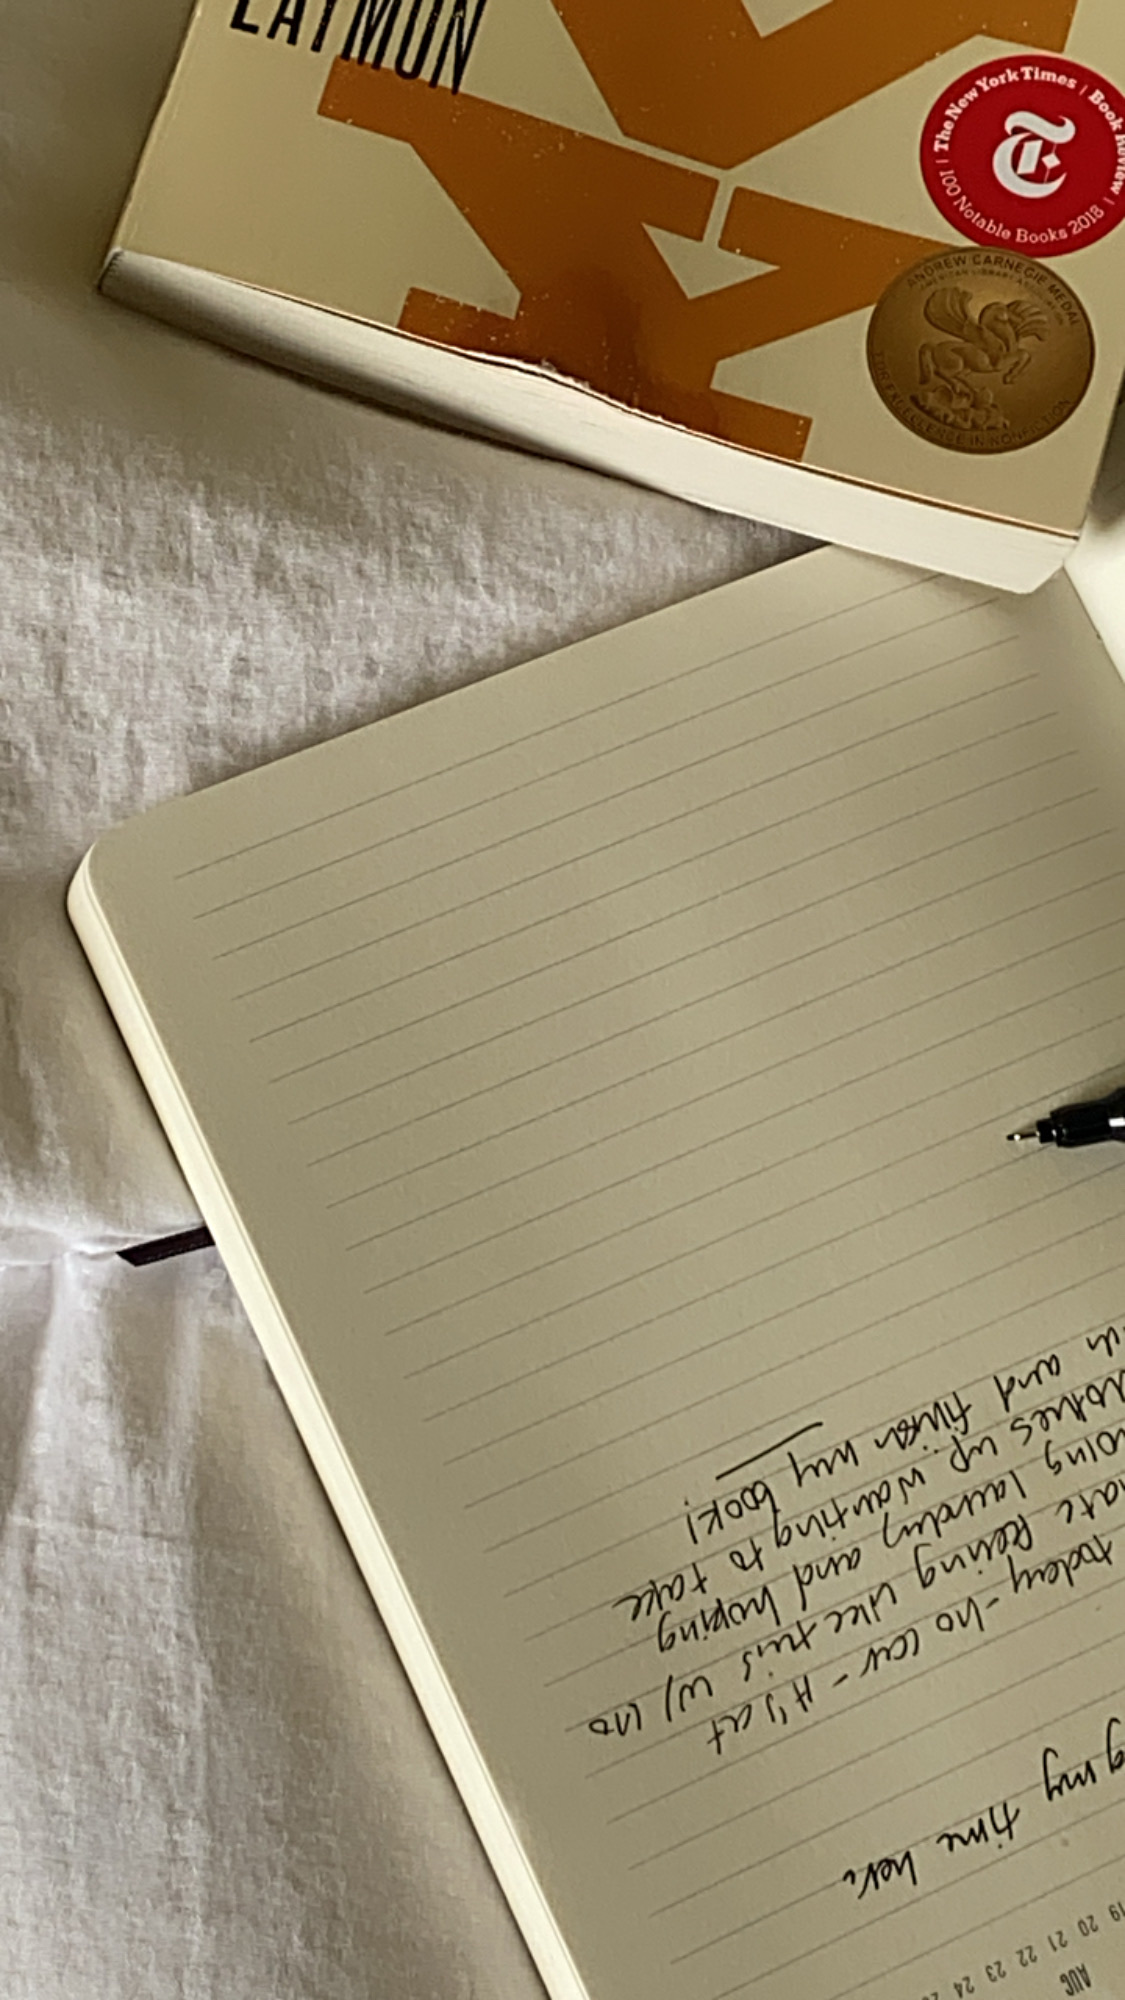 LAYMON
The New York Times | Book Review |
100 Notable Books 2018 |
ANDREW CARNEGIE MEDAL
FOR EXCELLENCE IN NONFICTION
AUG
19 20 21 22 23 24
time here
g my
today - no car - it's at
feeling like this w/ no
laundry and hoping
up. wanting to take
and finish my book!